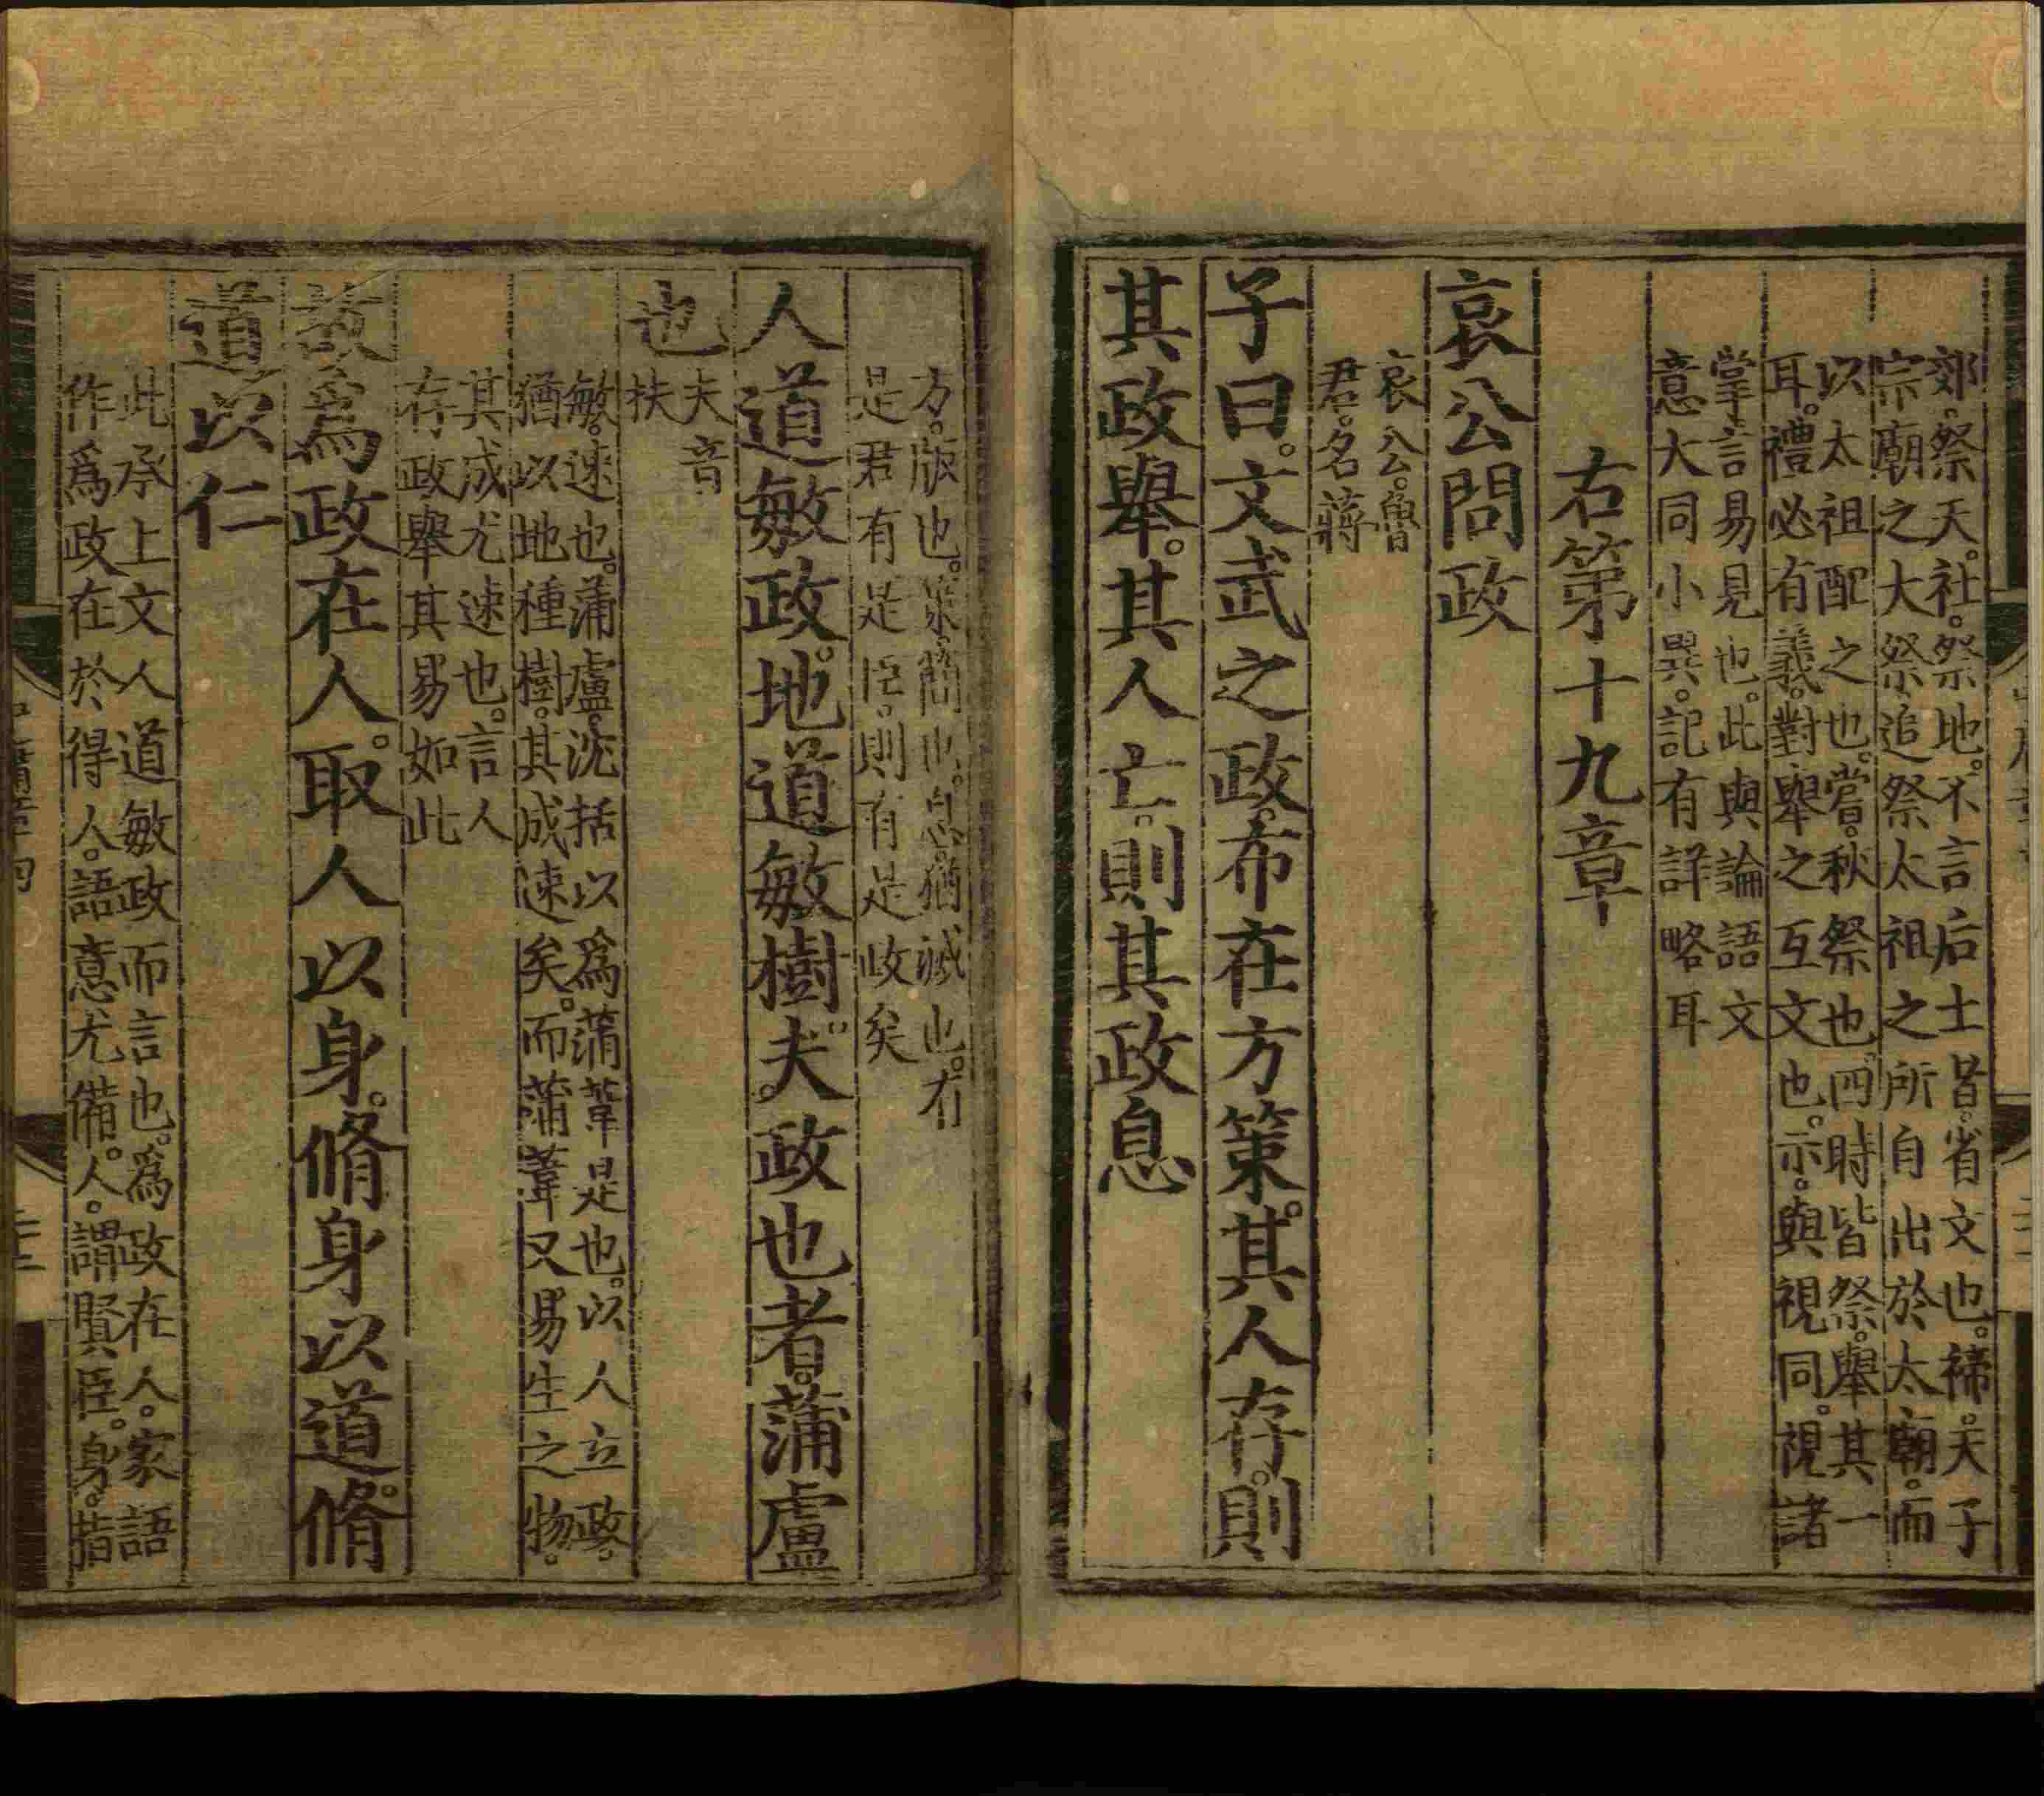 郊。祭天。社。祭地。不言后土者。省文也。禘。天子
宗廟之大祭。追祭太祖之所自出於太廟。而
以太祖配之也。嘗。秋祭也。四時皆祭。舉其一
耳。禮必有義。對舉之互文也。示。與視同。視諸
掌。言易見也。此與論語文
意大同小異。記有詳略耳
右第十九章
哀公問政
哀公。魯
君。名蔣
子曰。文武之政。布在方策。其人存。則
其政舉。其人亡。則其政息
方。版也。策。簡也。息。猶滅也。有
是君有是臣。則有是政矣
人道敏政。地道敏樹。夫政也者。蒲盧
也
夫音
扶
敏。速也。蒲盧。沈括以爲蒲葦是也。以人立政。
猶以地種樹。其成速矣。而蒲葦又易生之物。
其成尤速也。言人
存政舉其易如此
故爲政在人。取人以身。脩身以道。脩
道以仁
此承上文人道敏政而言也。爲政在人。家語
作爲政在於得人。語意尤備。人。謂賢臣。身。指